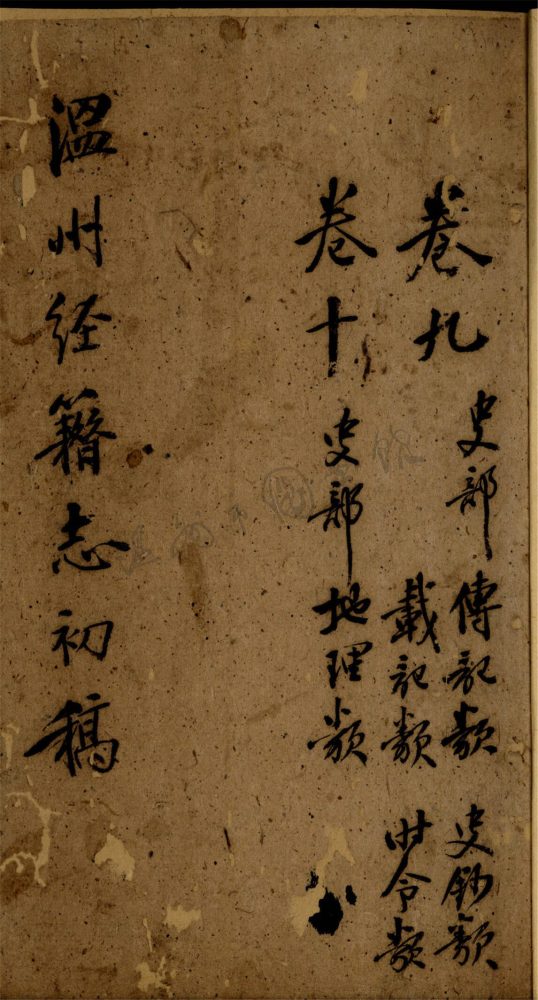 卷九 史部 傳記類 史鈔類
載記類 时令類
卷十 史部 地理類
温州经籍志初稿